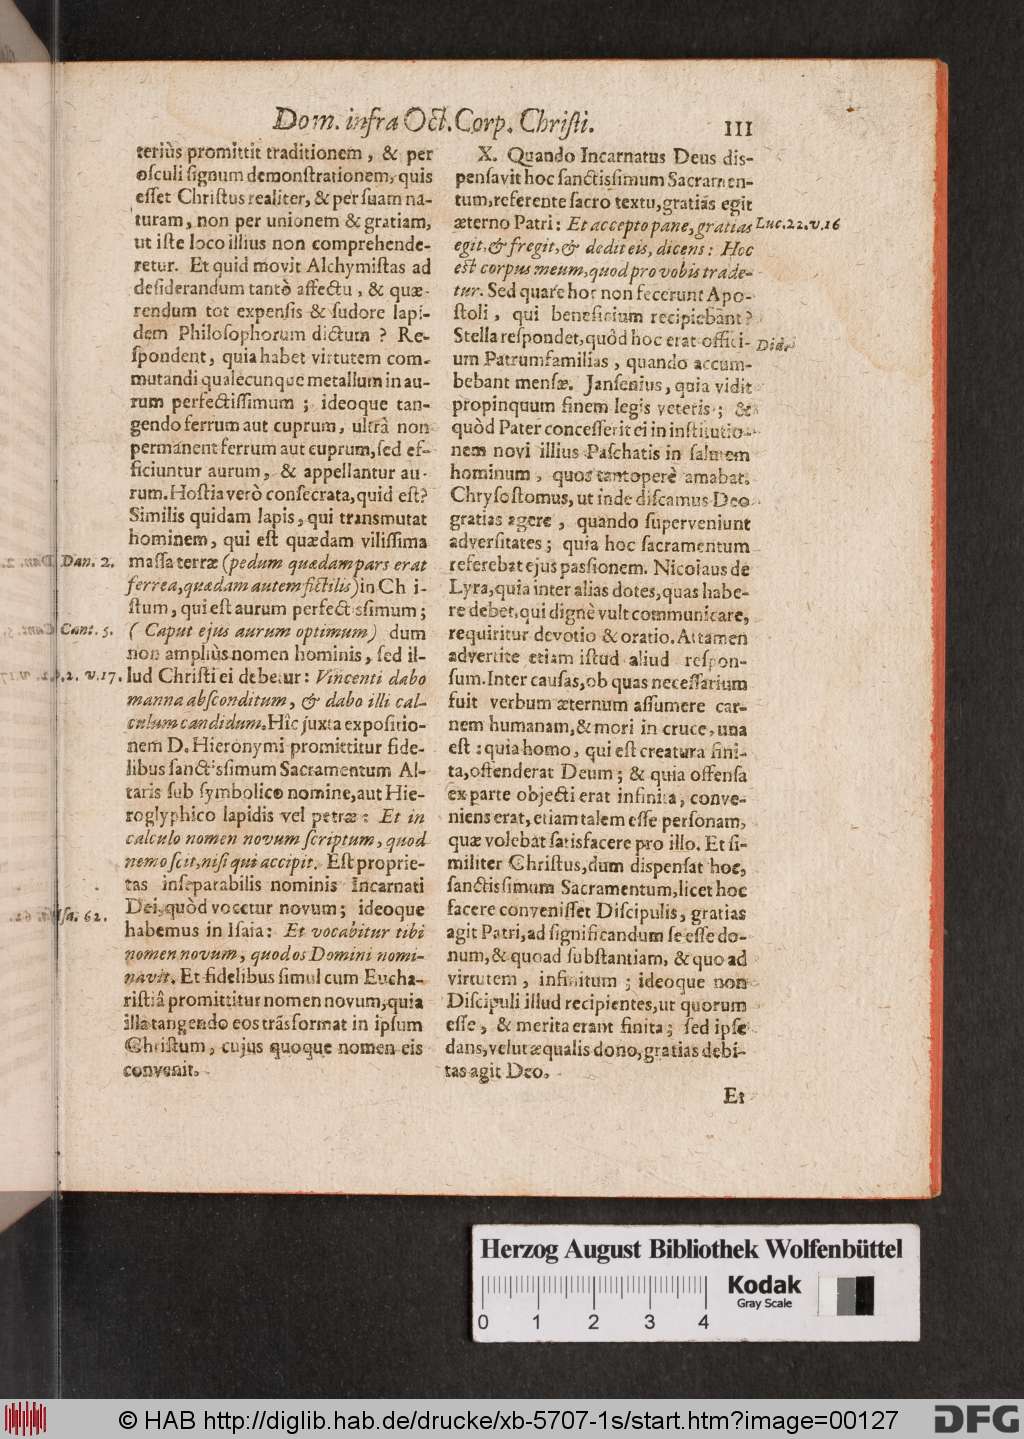 Dom. infra Oct. Corp. Christi.
111
teriùs promittit traditionem, & per
osculi signum demonstrationem, quis
esset Christus realiter, & per suam na-
turam, non per unionem & gratiam,
ut iste loco illius non comprehende-
retur. Et quid movit Alchymistas ad
desiderandum tantò affectu, & quæ-
rendum tot expensis & sudore lapi-
dem Philosophorum dictum ? Re-
spondent, quia habet virtutem com-
mutandi qualecunque metallum in au-
rum perfectissimum ; ideoque tan-
gendo ferrum aut cuprum, ultrà non
permanent ferrum aut cuprum, sed ef-
ficiuntur aurum, & appellantur au-
rum. Hostia verò consecrata, quid est?
Similis quidam lapis, qui transmutat
hominem, qui est quædam vilissima
Dan. 2.
massa terræ (pedum quædam pars erat
ferrea, quædam autem fictilis) in Ch i-
stum, qui est aurum perfect ssimum ;
Cant. 5.
( Caput ejus aurum optimum) dum
non ampliùs nomen hominis, sed il-
2. v. 17.
lud Christi ei debetur : Vincenti dabo
manna absconditum, & dabo illi cal-
culum candidum. Hîc juxta expositio-
nem D. Hieronymi promittitur fide-
libus sanctissimum Sacramentum Al-
taris sub symbolico nomine, aut Hie-
roglyphico lapidis vel petræ : Et in
calculo nomen novum scriptum, quod
nemo scit, nisi qui accipit. Est proprie-
tas inseparabilis nominis Incarnati
Dei, quòd vocetur novum ; ideoque
Isa. 62.
habemus in Isaia : Et vocabitur tibi
nomen novum, quod os Domini nomi-
navit. Et fidelibus simul cum Eucha-
ristiâ promittitur nomen novum, quia
illa tangendo eos trãsformat in ipsum
Christum, cujus quoque nomen eis
convenit.
X. Quando Incarnatus Deus dis-
pensavit hoc sanctissimum Sacramen-
tum, referente sacro textu, gratias egit
æterno Patri : Et accepto pane, gratias
Luc. 22. v. 16
egit, & fregit, & dedit eis, dicens : Hoc
est corpus meum, quod pro vobis trade-
tur. Sed quare hoc non fecerunt Apo-
stoli, qui beneficium recipiebant ?
Stella respondet, quòd hoc erat offici-
um Patrumfamilias, quando accum-
bebant mensæ. Jansenius, quia vidit
propinquum finem legis veteris ; &
quòd Pater concesserit ei in institutio-
nem novi illius Paschatis in salutem
hominum, quos tantoperè amabat.
Chrysostomus, ut inde discamus Deo
gratias agere, quando superveniunt
adversitates ; quia hoc sacramentum
referebat ejus passionem. Nicolaus de
Lyra, quia inter alias dotes, quas habe-
re debet, qui dignè vult communicare,
requiritur devotio & oratio. Attamen
advertite etiam istud aliud respon-
sum. Inter causas, ob quas necessarium
fuit verbum æternum assumere car-
nem humanam, & mori in cruce, una
est : quia homo, qui est creatura fini-
ta, offenderat Deum ; & quia offensa
ex parte objecti erat infinita, conve-
niens erat, etiam talem esse personam,
quæ volebat satisfacere pro illo. Et si-
militer Christus, dum dispensat hoc,
sanctissimum Sacramentum, licet hoc
facere convenisset Discipulis, gratias
agit Patri, ad significandum se esse do-
num, & quoad substantiam, & quo ad
virtutem, infinitum ; ideoque non
Discipuli illud recipientes, ut quorum
esse, & merita erant finita ; sed ipse
dans, velut æqualis dono, gratias debi-
tas agit Deo.
Et
Herzog August Bibliothek Wolfenbüttel
Kodak
Gray Scale
0 1 2 3 4
© HAB http://diglib.hab.de/drucke/xb-5707-1s/start.htm?image=00127
DFG